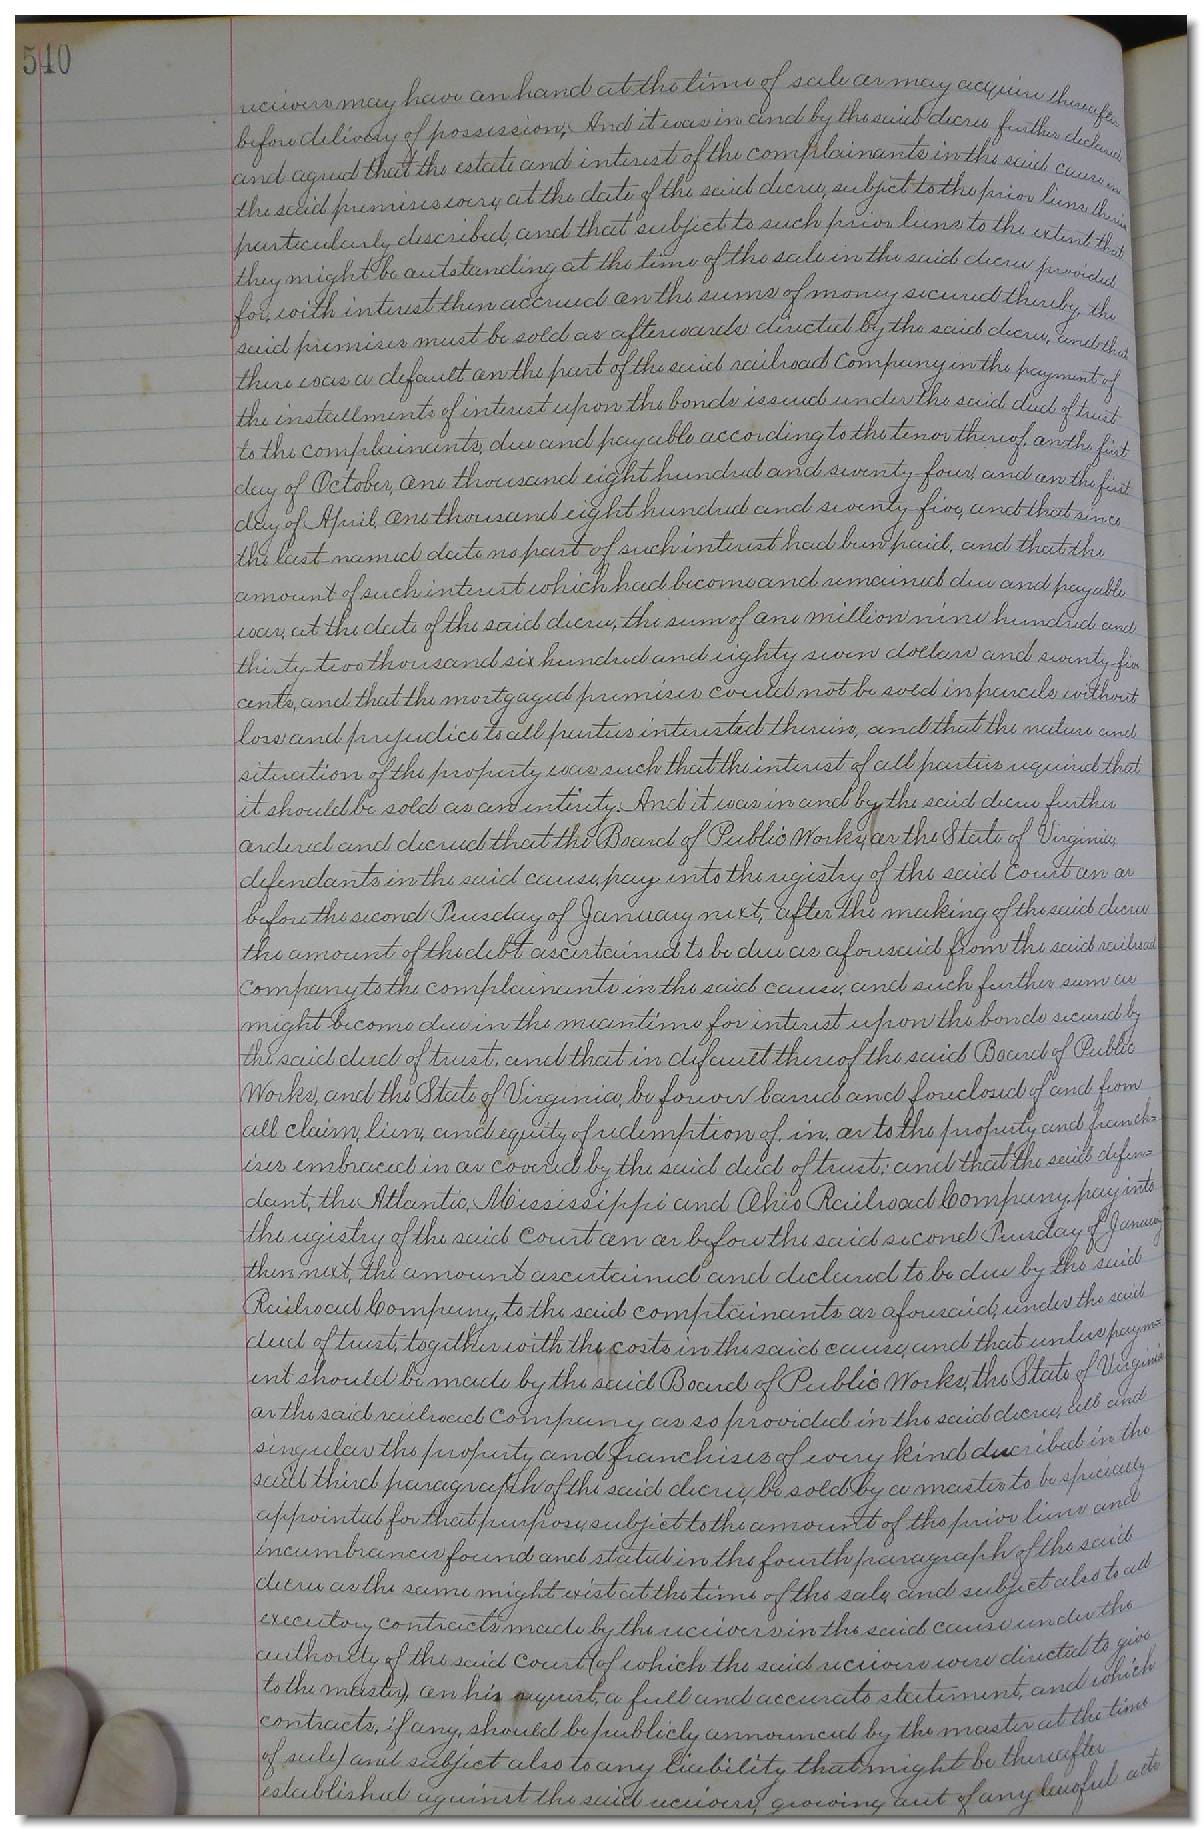 540
receivers may have on hand at the time of sale or may acquire thereafter
before delivery of possession; And it was in and by the said decree further declared
and agreed that the estate and interest of the complainants in the said cause in
the said premises were, at the date of the said decree, subject to the prior liens therein
particularly described, and that subject to such prior liens to the extent that
they might be outstanding at the time of the sale in the said decree provided
for, with interest then accrued on the sums of money secured thereby, the
said premises must be sold as afterwards directed by the said decree, and that
there was a default on the part of the said railroad Company in the payment of
the installments of interest upon the bonds issued under the said deed of trust
to the complainants, due and payable according to the tenor thereof, on the first
day of October, one thousand eight hundred and seventy four, and on the first
day of April, one thousand eight hundred and seventy five, and that since
the last named date no part of such interest had been paid, and that the
amount of such interest which had become and remained due and payable
was, at the date of the said decree, the sum of one million nine hundred and
thirty-two thousand six hundred and eighty seven dollars and seventy-five
cents, and that the mortgaged premises could not be sold in parcels without
loss and prejudice to all parties interested therein, and that the nature and
situation of the property was such that the interest of all parties required that
it should be sold as an entirety. And it was in and by the said decree further
ordered and decreed that the Board of Public Works, or the State of Virginia,
defendants in the said cause, pay into the registry of the said Court on or
before the second Tuesday of January next, after the making of the said decree
the amount of the debt ascertained to be due as aforesaid from the said railroad
Company to the complainants in the said cause, and such further sum as
might become due in the meantime for interest upon the bonds secured by
the said deed of trust, and that in default thereof the said Board of Public
Works, and the State of Virginia, be forever barred and foreclosed of and from
all claim, lien, and equity of redemption of, in, or to the property and franch=
ises embraced in or covered by the said deed of trust; and that the said defen=
dant, the Atlantic, Mississippi and Ohio Railroad Company, pay into
the registry of the said Court on or before the said second Tuesday of January
then next, the amount ascertained and declared to be due by the said
Railroad Company, to the said complainants as aforesaid, under the said
deed of trust, together with the costs in the said cause, and that unless paym=
ent should be made by the said Board of Public Works, the State of Virginia
or the said railroad Company as so provided in the said decree, all and
singular the property and franchises of every kind described in the
said third paragraph of the said decree, be sold by a master to be specially
appointed for that purpose, subject to the amount of the prior liens and
incumbrances found and stated in the fourth paragraph of the said
decree as the same might exist at the time of the sale, and subject also to all
executory contracts made by the receivers in the said cause under the
authority of the said Court (of which the said receivers were directed to give
to the master), on his request, a full and accurate statement, and which
contracts, if any, should be publicly announced by the master at the time
of sale) and subject also to any liability that might be thereafter
established against the said receivers, growing out of any lawful acts